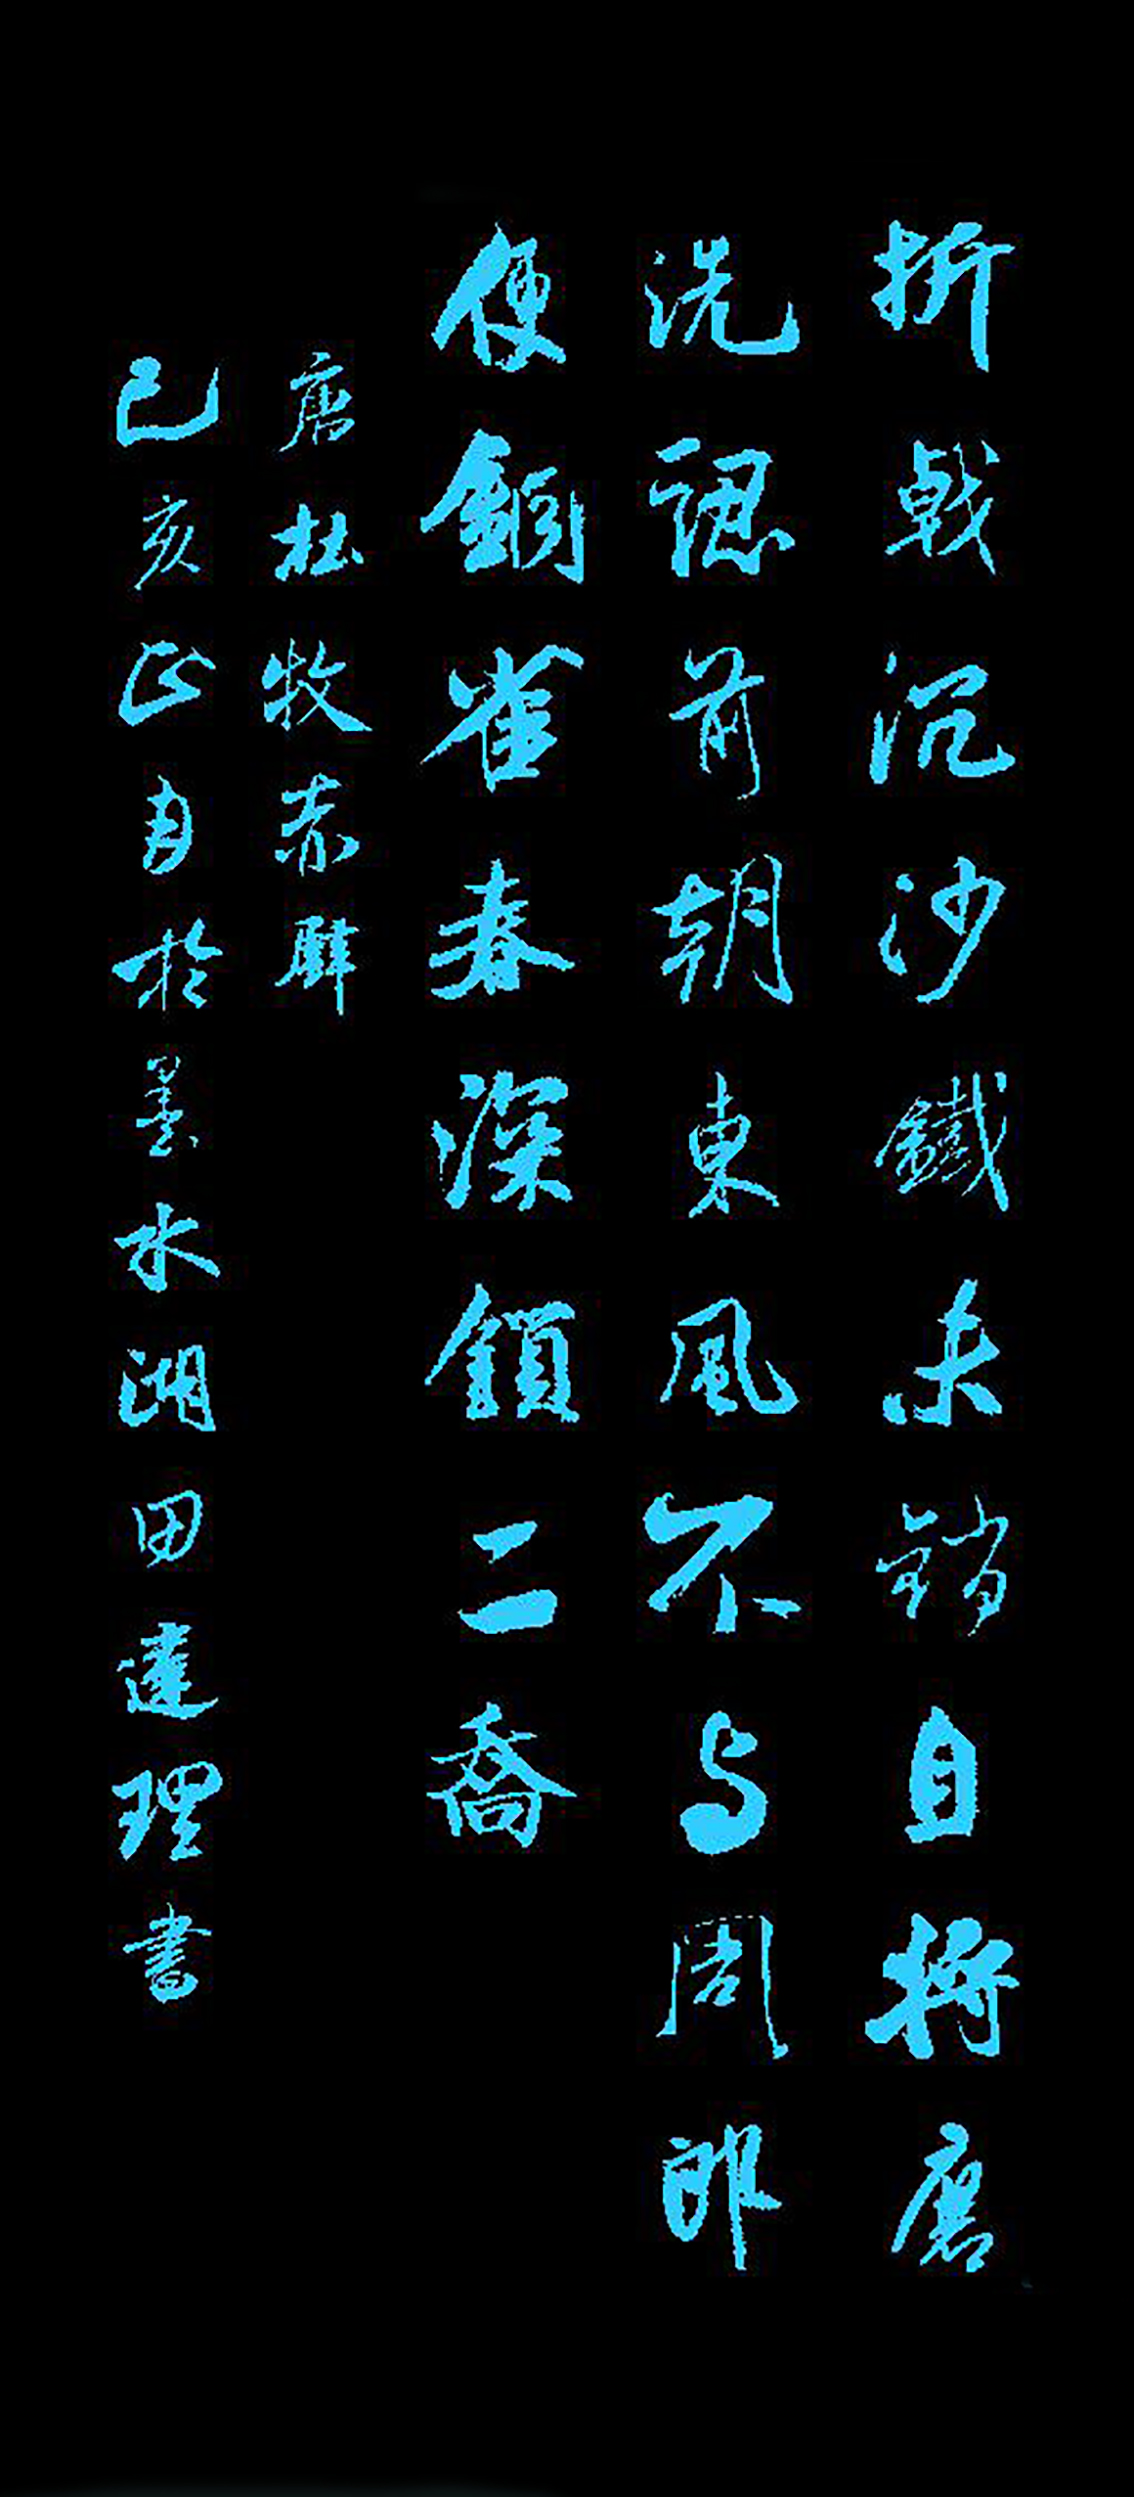 折戟沉沙鐵未銷自將磨
洗認前朝東風不与周郎
便銅雀春深鎖二喬
唐杜牧赤壁
己亥正月於墨水湖田達理書